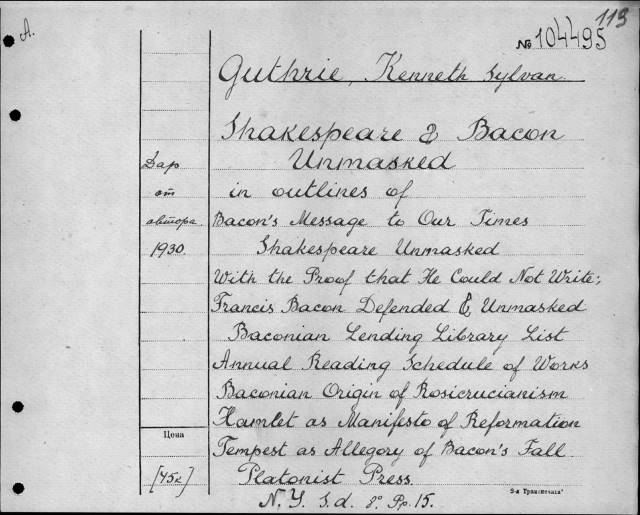 A.
113
№ 104495
Guthrie, Kenneth Sylvan.
Shakespeare & Bacon
Unmasked
in outlines of
Bacon's Message to Our Times
Shakespeare Unmasked
With the Proof that He Could Not Write;
Francis Bacon Defended & Unmasked
Baconian Lending Library List
Annual Reading Schedule of Works
Baconian Origin of Rosicrucianism
Hamlet as Manifesto of Reformation
Tempest as Allegory of Bacon's Fall
Platonist Press.
N.Y. S.d. 8°. Pp. 15.
Дар
от
автора
1930.
Цена
[45к]